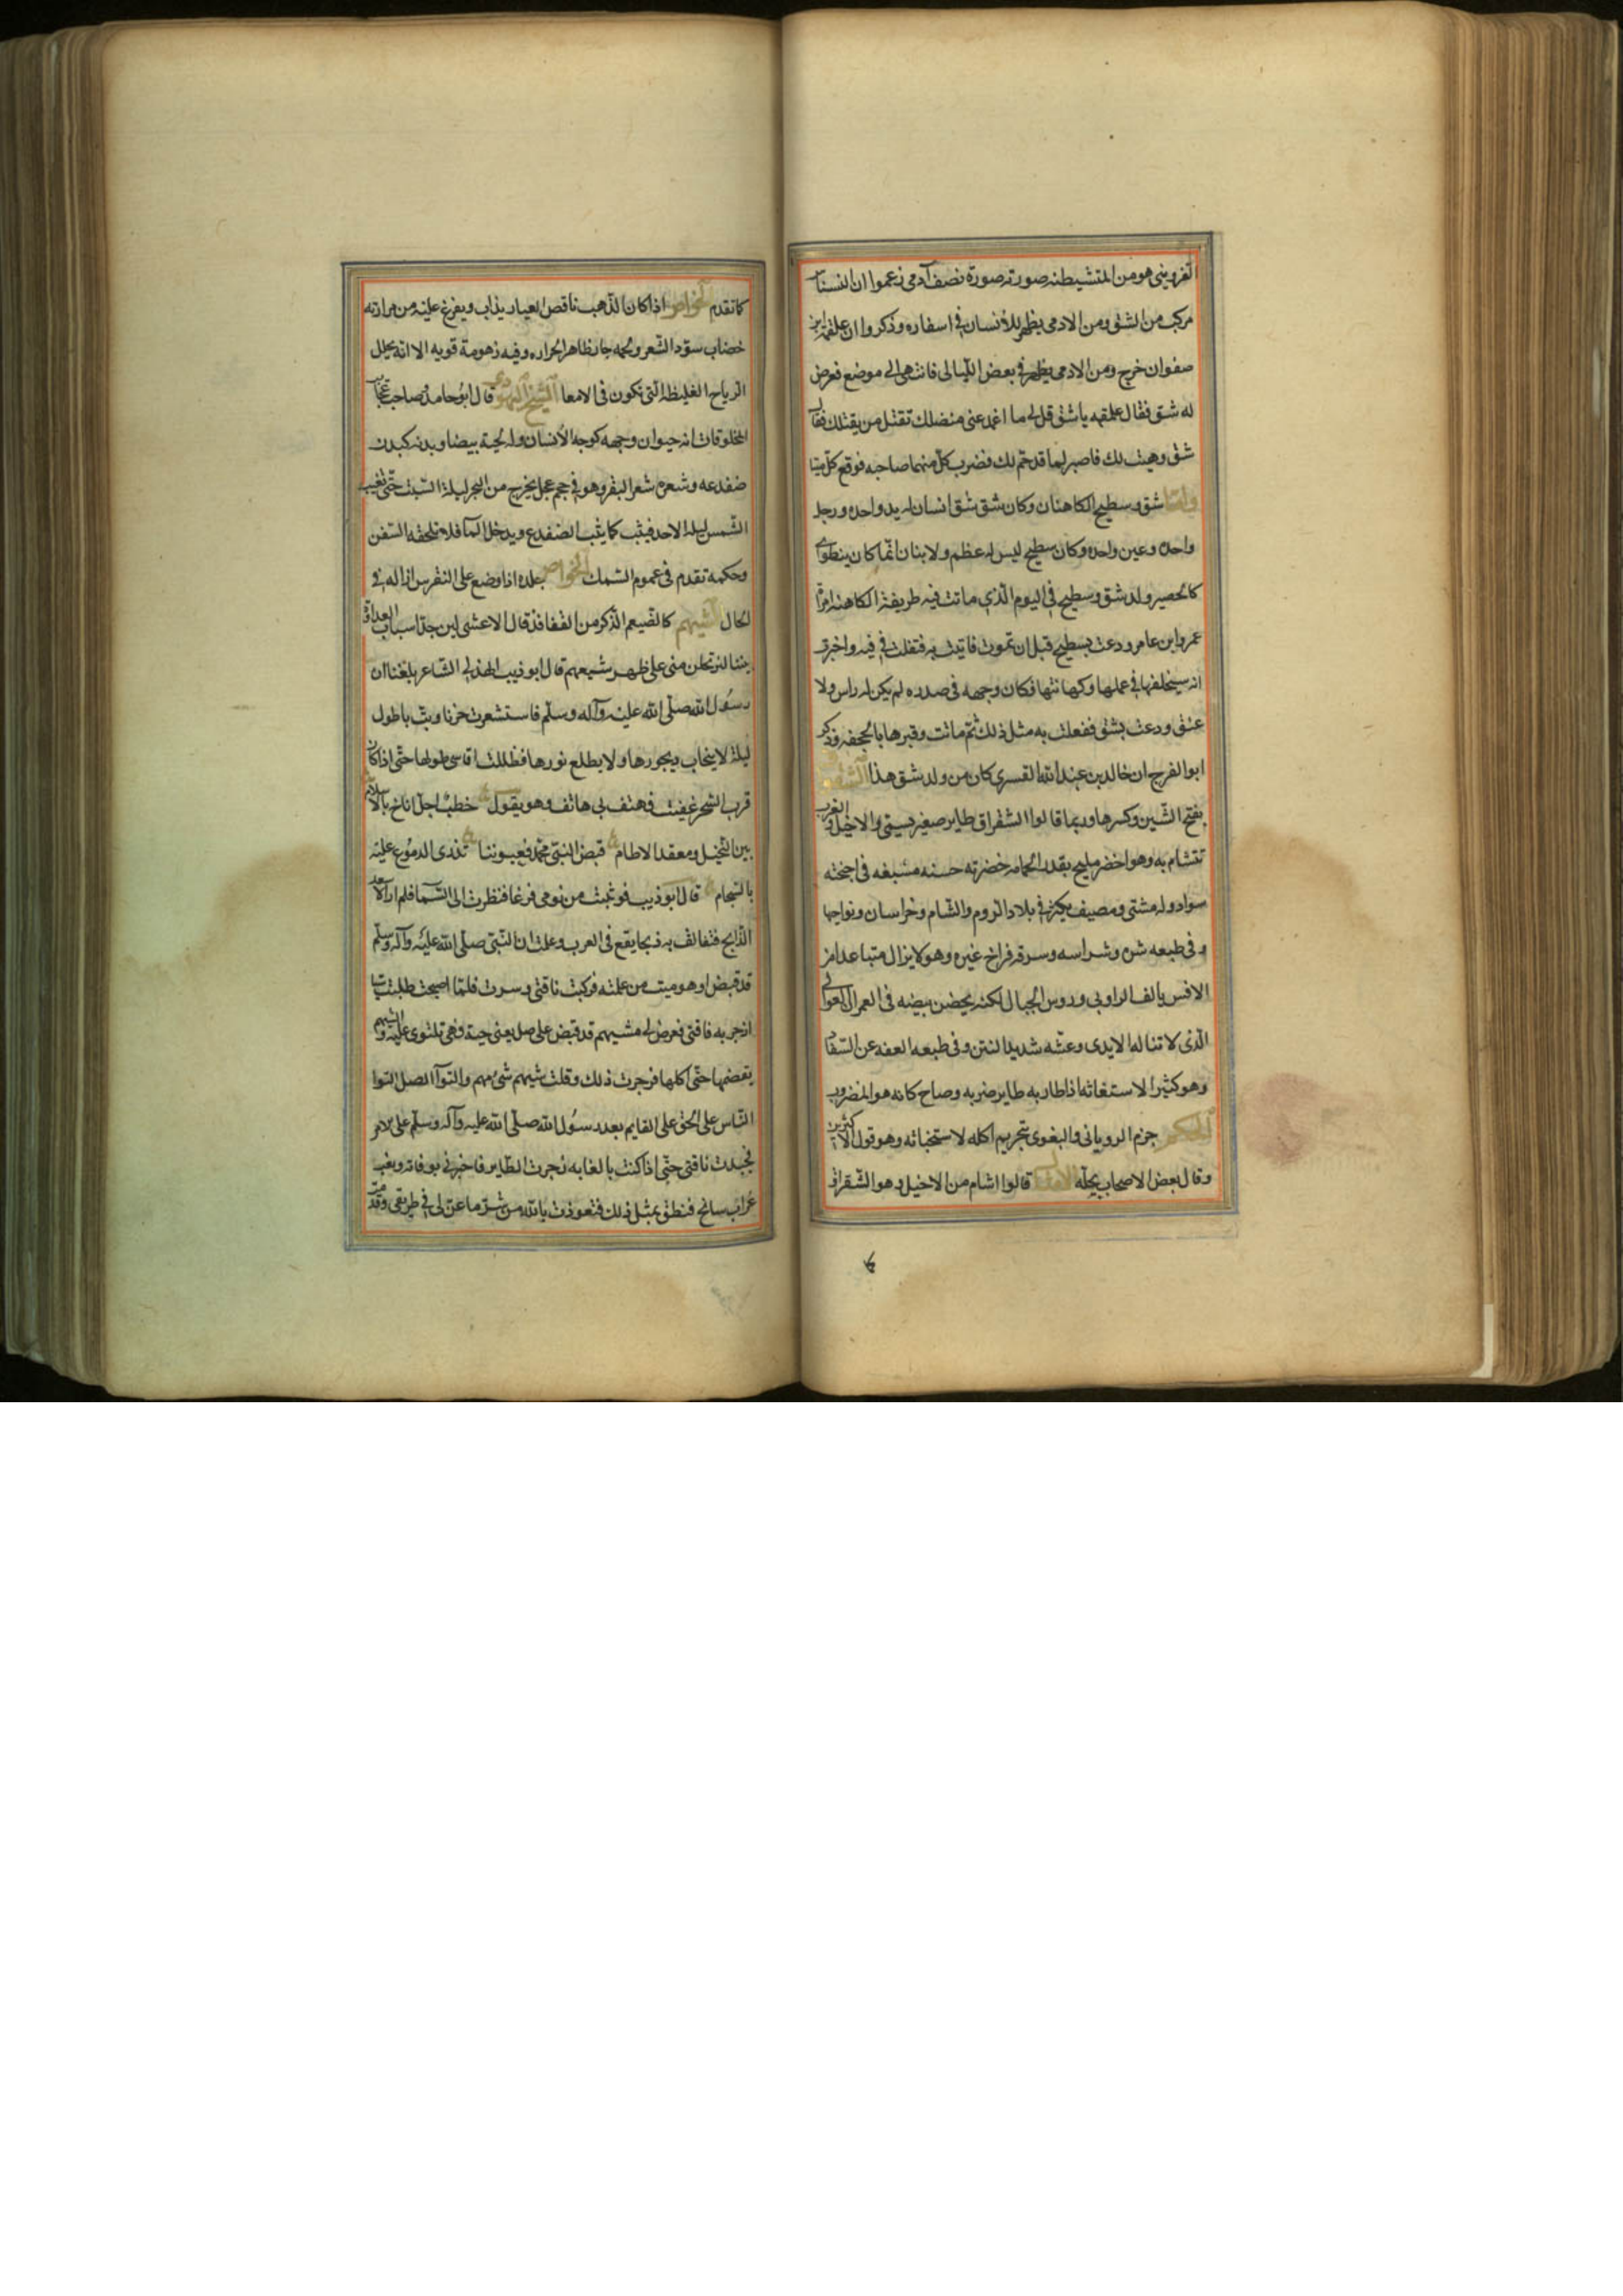 القزويني هو من المتشيطنه صورته صورة نصف آدمي زعموا ان النسناس
مركب من الشق ومن الادمي يظهر للانسان في اسفاره وذكروا ان علقمة ابن
صفوان خرج ومن الادمي يظهر في بعض الليالى فانتهى الى موضع فعرض
له شق فقال علمقه ياشق قل لي ما اغمد عنى منضلك تقتل من يقتلك فقال
شق وهيت لك فاصبر لما قد حتم لك فضرب كل منهما صاحبه فوقع كل ميتا
واما شق وسطيح الكاهنان وكان شق شق انسان له يد واحده ورجل
واحده وعين واحده وكان سطيح ليس له عظم ولا بنان انما كان ينطوى
كالحصير ولد شق وسطيح في اليوم الذي ماتت فيه طريفة الكاهنه امرأة
عمروا بن عامر ودعت بسطيح قبل ان تموت فاتيت به فتفلت في فيه واخبرت
انه سيخلفها في علمها وكهانتها فكان وجهه في صدره لم يكن له راس ولا
عنق ودعت بشق ففعلت به مثل ذلك ثم ماتت وقبرها بالجحفه وذكر
ابو الفرج ان خالد بن عبد الله القسري كان من ولد شق هذا الشقراق
بفتح الشين وكسرها وربما قالوا الشقراق طاير صغير يسمى الاخيل والعرب
تتشام به وهو اخضر مليح بقدر الحمامه خضرته حسنه مشبعه في اجنحته
سواد وله مشتى ومصيف يكثر في بلاد الروم والشام وخراسان ونواحيها
وفى طبعه شره وشراسه وسرقه فراخ غيره وهو لا يزال متباعدا من
الانس يالف الروابي وروس الجبال لكنه يحضن بيضه في العمران العوالي
الذى لا تناله الايدى وعشه شديد النتن وفى طبعه العفه عن السفاد
وهو كثير الاستغاثه اذا طار به طاير ضربه وصاح كانه هو المضروب
الحكم جزم الروياني والبغوي بتحريم اكله لاستخباثه وهو قول الاكثرين
وقال بعض الاصحاب بحله الامثال قالوا اشام من الاخيل وهو الشقراق
كما تقدم الخواص اذا كان الذهب ناقص العيار يذاب ويفرغ عليه من مرارته
خضاب سود الشعر ولحمه حار ظاهر الحراره وفيه زهومة قويه الا انه يحلل
الرياح الغليظه التى تكون في الامعا الشيخ اليهودى قال ابو حامد صاحب عجايب
المخلوقات انه حيوان وجهه كوجه الانسان وله لحية بيضا وبدنه كبدن
ضفدعه وشعره شعر البقر وهو في حجم عجل يخرج من البحر ليلة السبت حتى تغيب
الشمس ليلة الاحد فيثب كما يثب الضفدع ويدخل الما فلا تلحقه السفن
وحكمه تقدم في عموم السمك الخواص جلده اذا وضع على النقرس ازاله في
الحال الشيهم كالضيعم الذكر من القنافذ قال الاعشى لين جد اسباب العداوة
بيننا لترتحلن منى على ظهر شيهم قال ابو ذيب الهذلي الشاعر بلغنا ان
رسول الله صلى الله عليه وآله وسلم فاستشعرت حزنا وبت باطول
ليلة لا ينجاب ديجورها ولا يطلع نورها فظللت اقاسى طولها حتى اذا كان
قرب السحر غفيت فهتف بي هاتف وهو يقول خطب اجل اناخ بالاسلام
بين النخيل ومعقد الاطام قبض النبي محمد فعيوننا تذرى الدموع عليه
بالسجام قال ابو ذيب فوثبت من نومى فزعا فنظرت الى السما فلم ار الا سعد
الذابح فتفالت به ذبحا يقع في العرب وعلمت ان النبي صلى الله عليه وآله وسلم
قد قبض او هو ميت من علته فركبت ناقتى وسرت فلما اصبحت طلبت شيا
ازجر به ناقتى فعرض لي مشيهم قد قبض على صل يعنى حية وهى تلتوى عليه والشيهم
يقضمها حتى اكلها فزجرت ذلك وقلت شيهم شى مهم والتوآ الصل التوا
الناس على الحق على القايم بعد رسول الله صلى الله عليه وآله وسلم على الامر
فجدت ناقتى حتى اذا كنت بالغابه زجرت الطاير فاخبرني بوفاته ونعب
غراب سانح فنطق بمثل ذلك فتعوذت بالله من شر ما عن لى في طريقى وقدمت